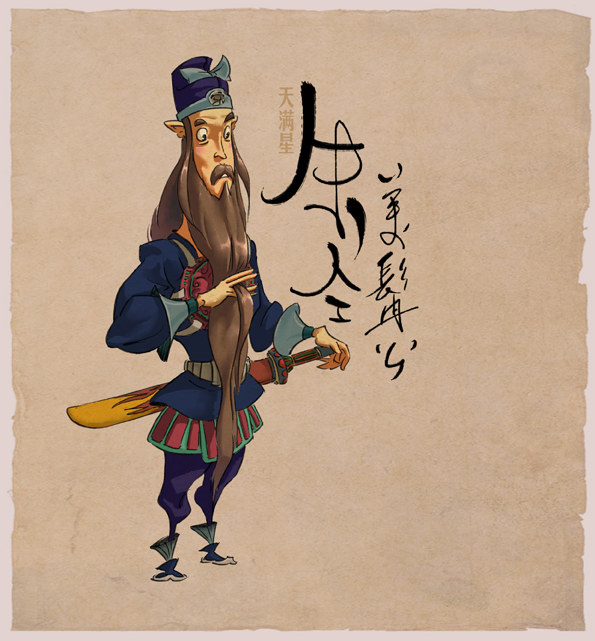 天满星
朱仝
美髯公